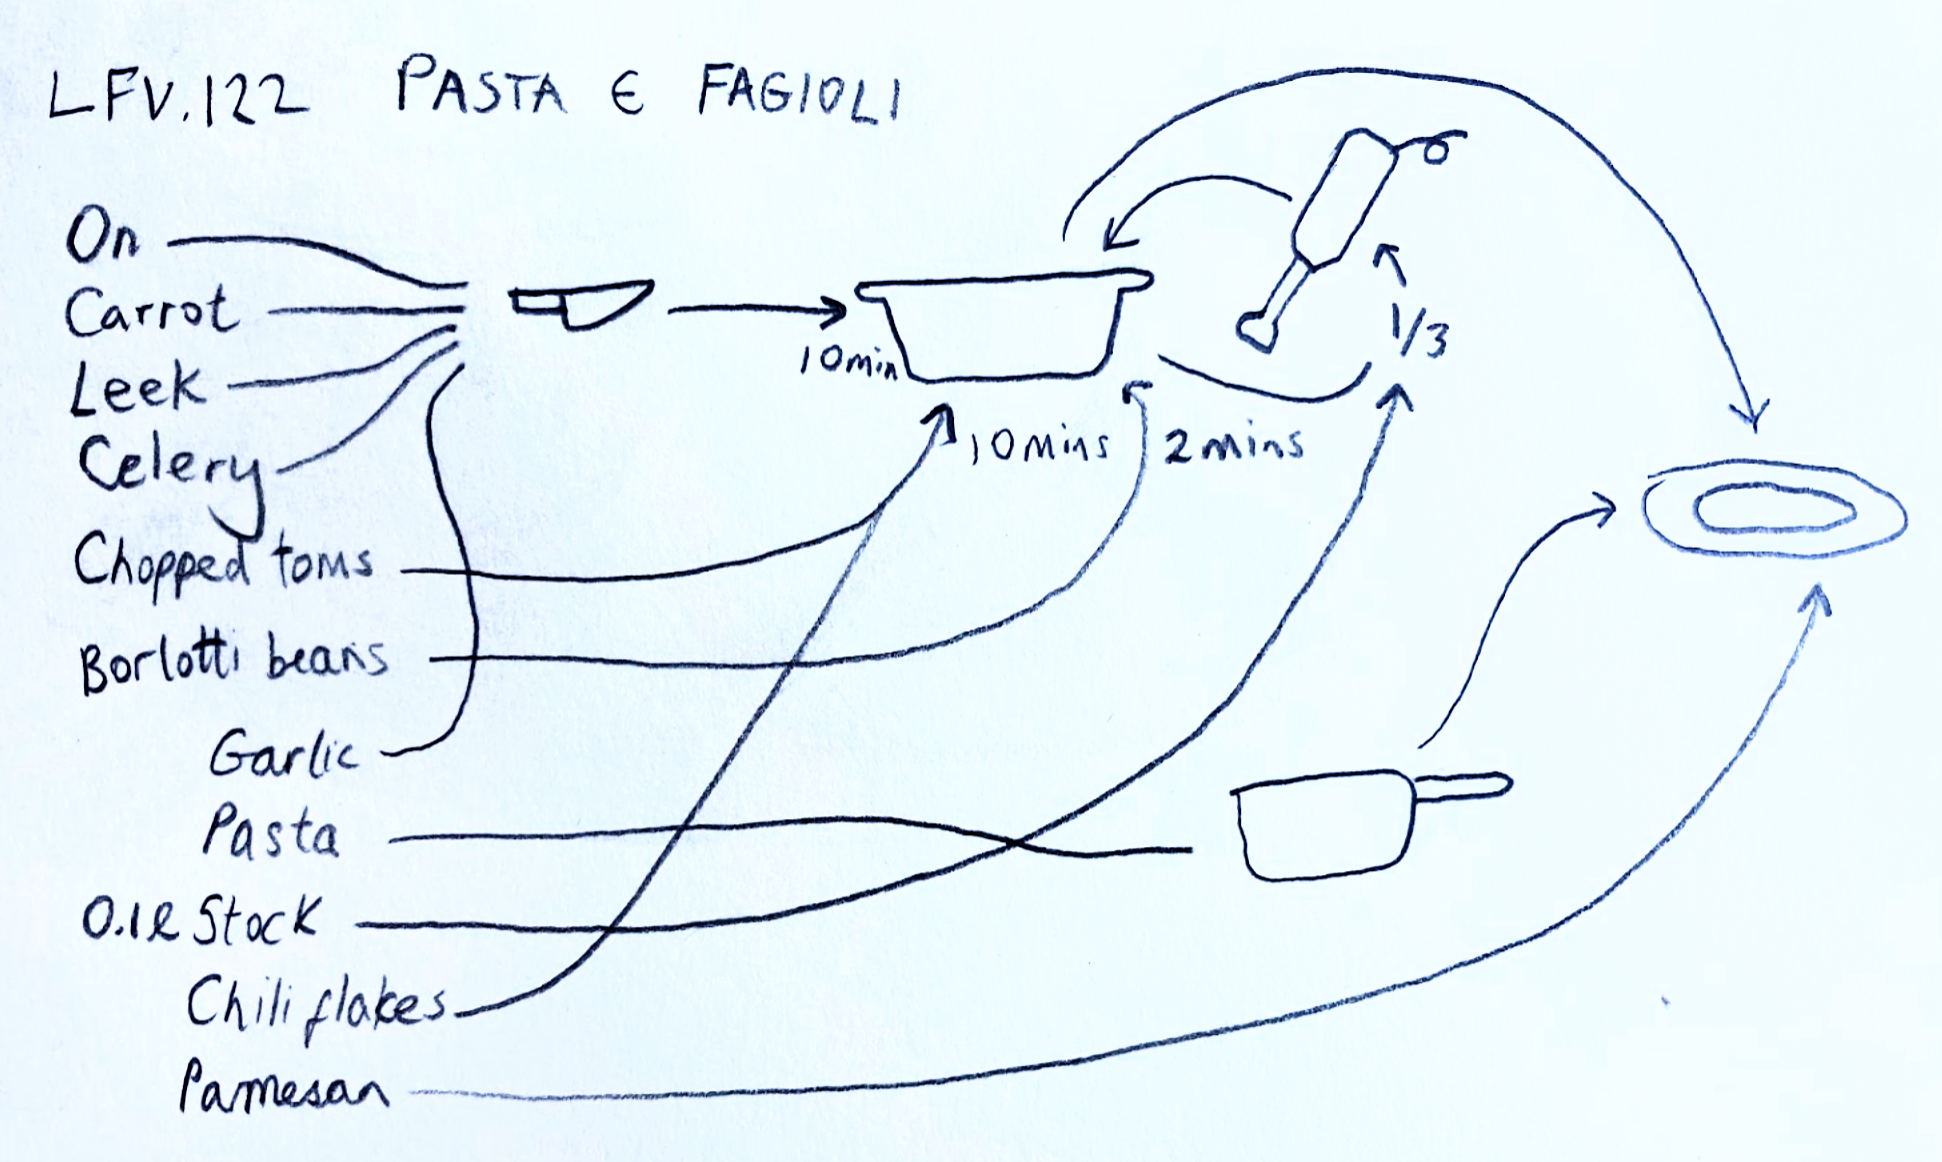 LFV.122 PASTA E FAGIOLI
On
Carrot
Leek
Celery
Chopped toms
Borlotti beans
Garlic
Pasta
0.1l Stock
Chili flakes
Parmesan
10min
10mins
2mins
1/3